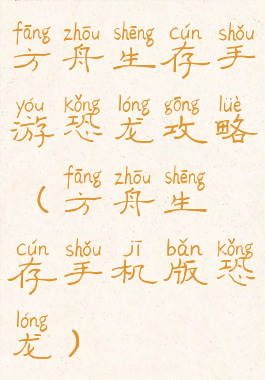 fāng zhōu shēng cún shǒu
方舟生存手
yóu kǒng lóng gōng lüè
游恐龙攻略
fāng zhōu shēng
（方舟生
cún shǒu jī bǎn kǒng
存手机版恐
lóng
龙）